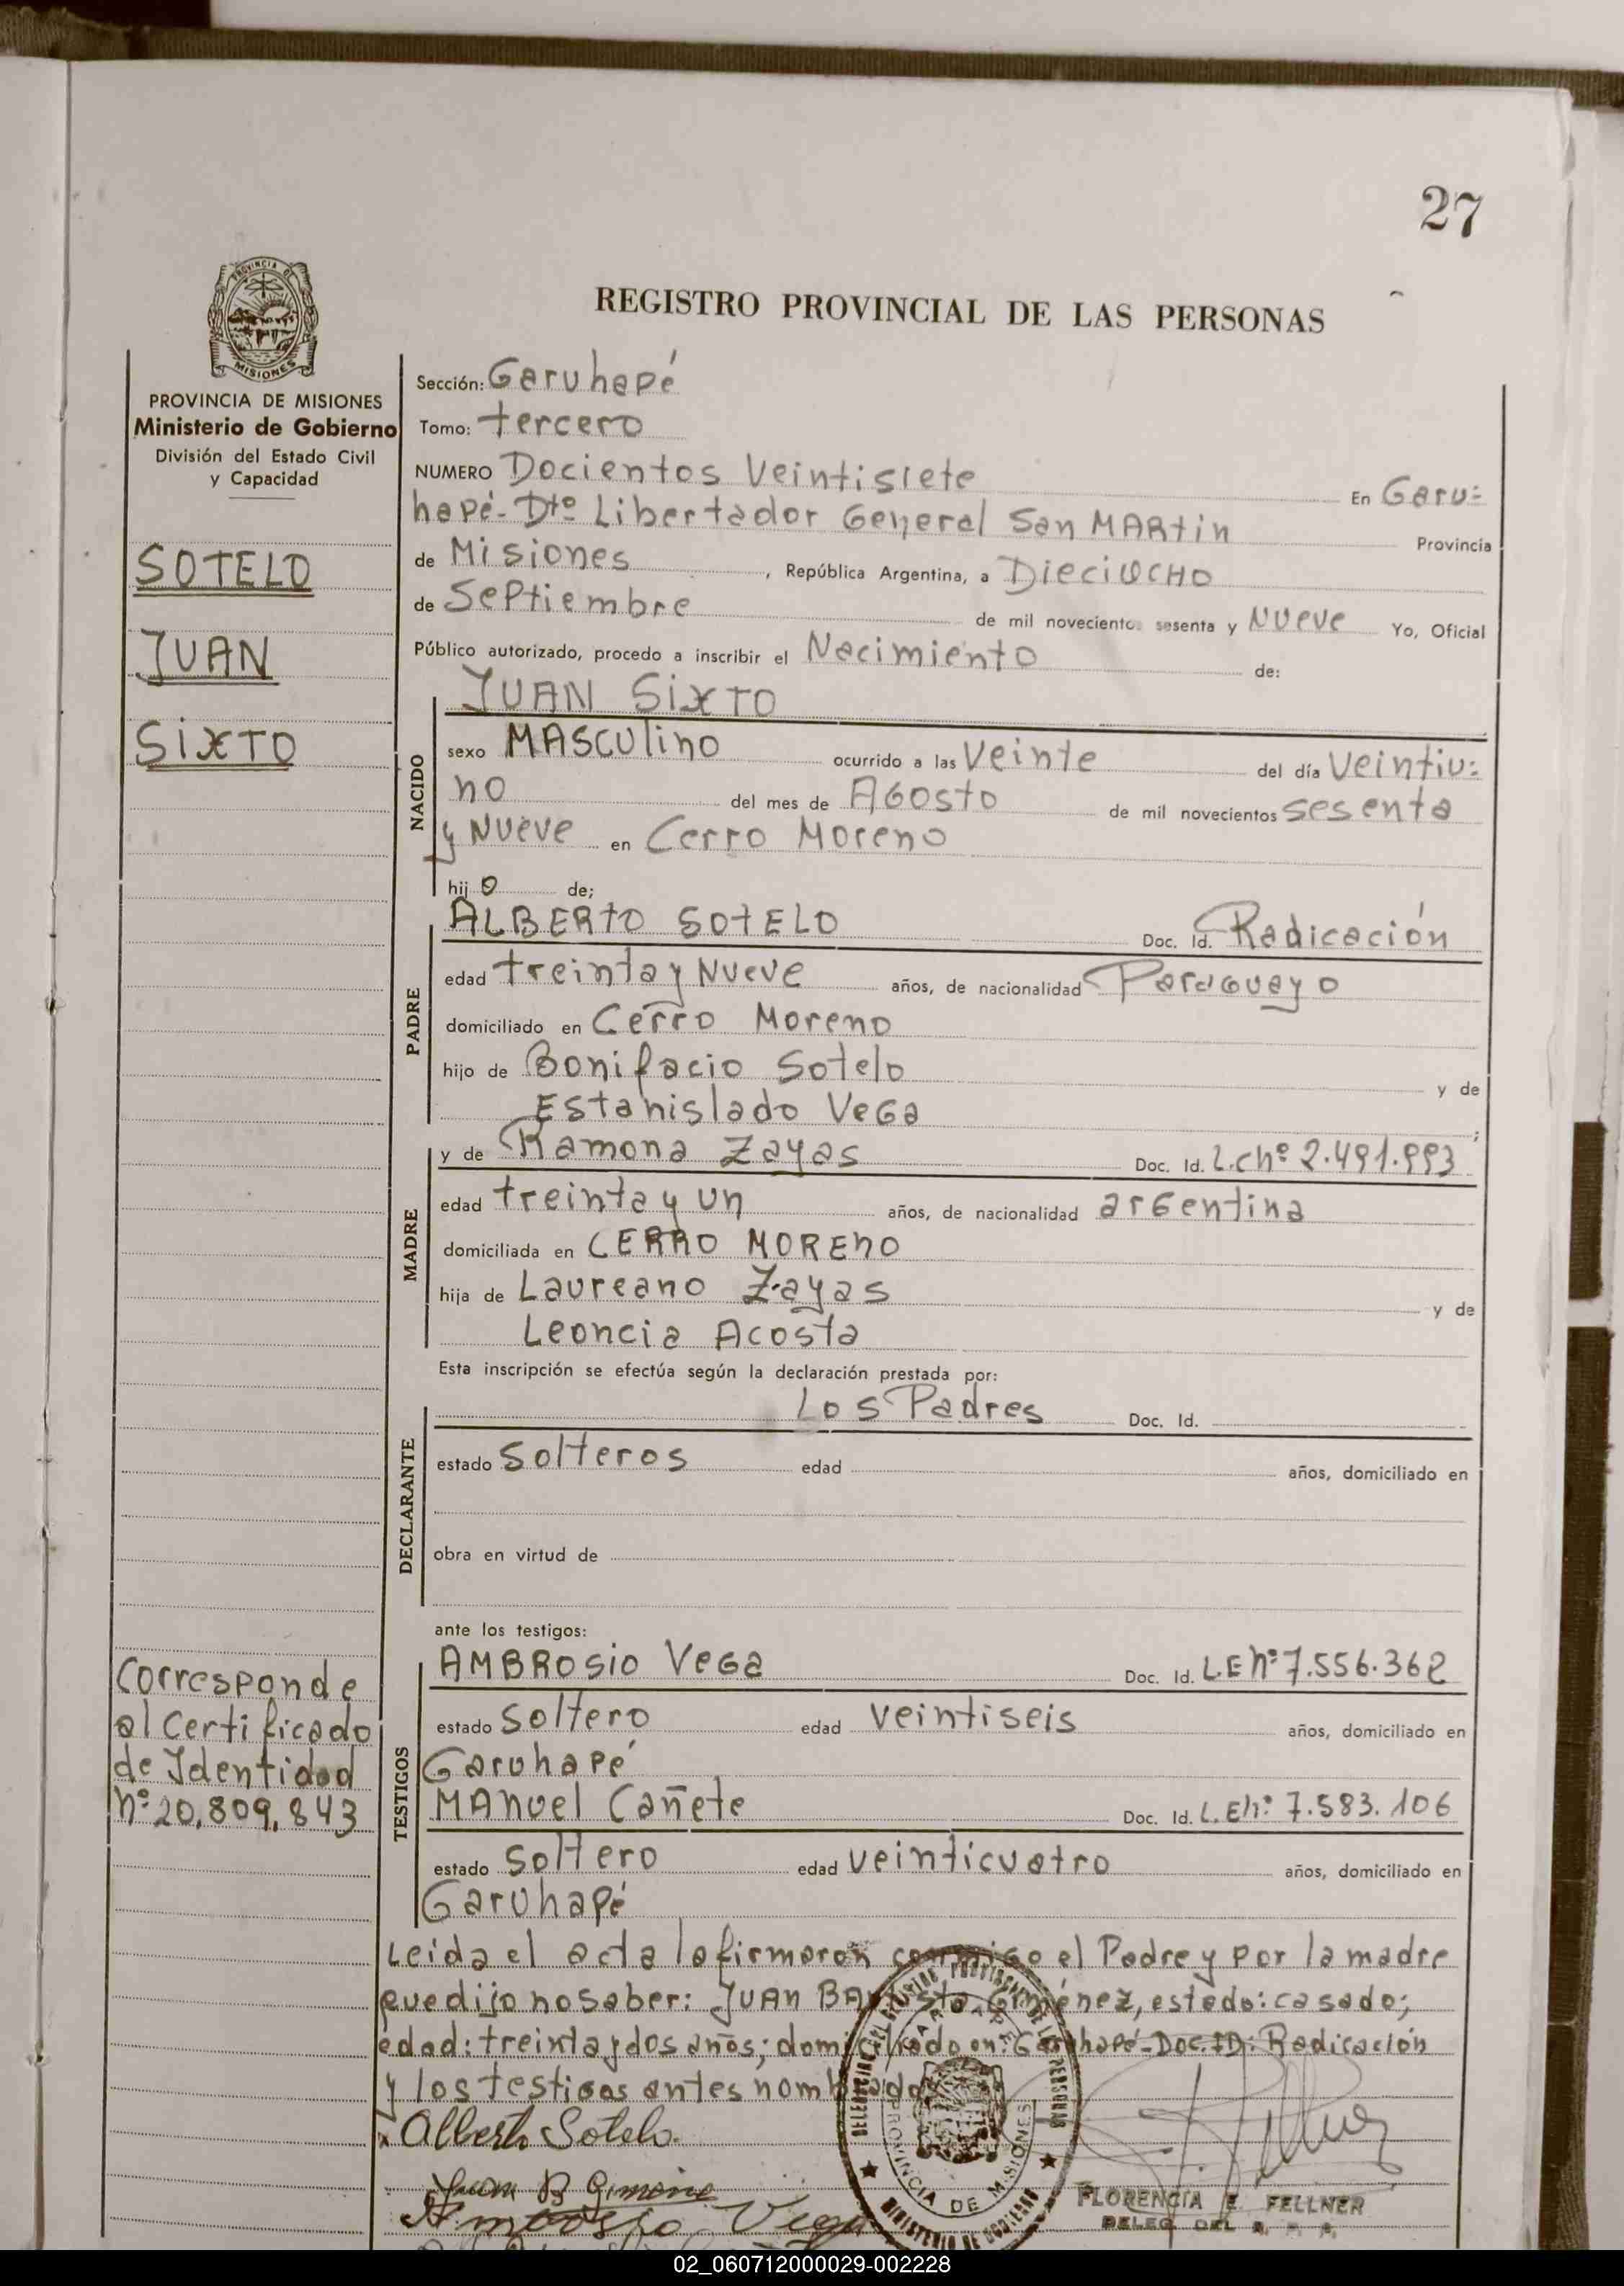 27
PROVINCIA DE
MISIONES
REGISTRO PROVINCIAL DE LAS PERSONAS
PROVINCIA DE MISIONES
Ministerio de Gobierno
División del Estado Civil
y Capacidad
SOTELO
JUAN
SixTO
Sección: Garuhapé
Tomo: tercero
NUMERO Docientos Veintisiete En Garu=
hapé- Dto Libertador General San MARtin Provincia
de Misiones, República Argentina, a DieciocHO
de Septiembre de mil novecientos sesenta y NUeve Yo, Oficial
Público autorizado, procedo a inscribir el Nacimiento de:
JUAN SixTO
NACIDO
sexo MASCULino ocurrido a las Veinte del día Veintiu=
no del mes de AGosto de mil novecientos sesenta
y NUeve en Cerro Moreno
hijo de;
PADRE
ALBERTO SOTELO Doc. Id. Radicación
edad treinta y NUeve años, de nacionalidad Paraguayo
domiciliado en Cerro Moreno
hijo de Bonifacio Sotelo y de
Estanislado VeGa;
MADRE
y de Ramona Zayas Doc. Id. L.C nº 2.491.993
edad treinta y un años, de nacionalidad arGentina
domiciliada en CERRO MOREnO
hija de Laureano Zayas y de
Leoncia Acosta
Esta inscripción se efectúa según la declaración prestada por:
DECLARANTE
Los Padres Doc. Id.
estado solteros edad años, domiciliado en
obra en virtud de
ante los testigos:
TESTIGOS
AMBROSio VeGa Doc. Id. L.E nº 7.556.362
estado soltero edad veintiseis años, domiciliado en
Garuhapé
MAnuel Cañete Doc. Id. L.E nº 7.583.106
estado soltero edad veinticuatro años, domiciliado en
Garuhapé
Corresponde
al Certificado
de Identidad
nº 20.809.843
Leida el acta la firmaron conmigo el Padre y por la madre
que dijo no saber: JUAn BAutista Giménez, estado: casado;
edad: treinta y dos años; domiciliado en: Garuhapé- Doc. ID: Radicación
y los testigos antes nombrados
Alberto Sotelo.
Juan B Gimenez
Ambrosio Vega
PROVINCIA DE MISIONES
MINISTERIO DE GOBIERNO
FLORENCIA E. FELLNER
DELEG. DEL R. P. P.
02_060712000029-002228